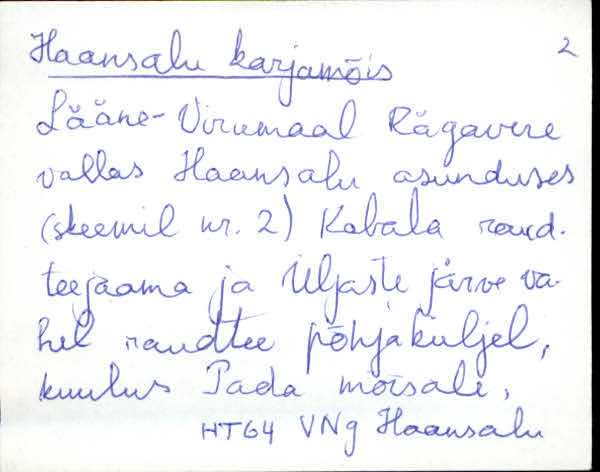 Haansalu karjamõis 2
Lääne-Virumaal Rägavere
vallas Haansalu asunduses
(skeemil nr. 2) Kabala raud-
teejaama ja Uljaste järve va-
hel raudtee põhjaküljel,
kuulus Pada mõisale,
HT64 VNg Haansalu